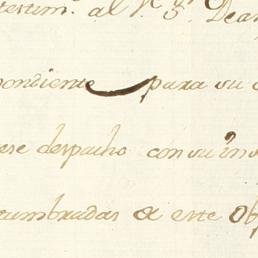 testim.º al V.e S.r Dean
pondiente para su
ese despacho con su in
tumbradas & este Ob